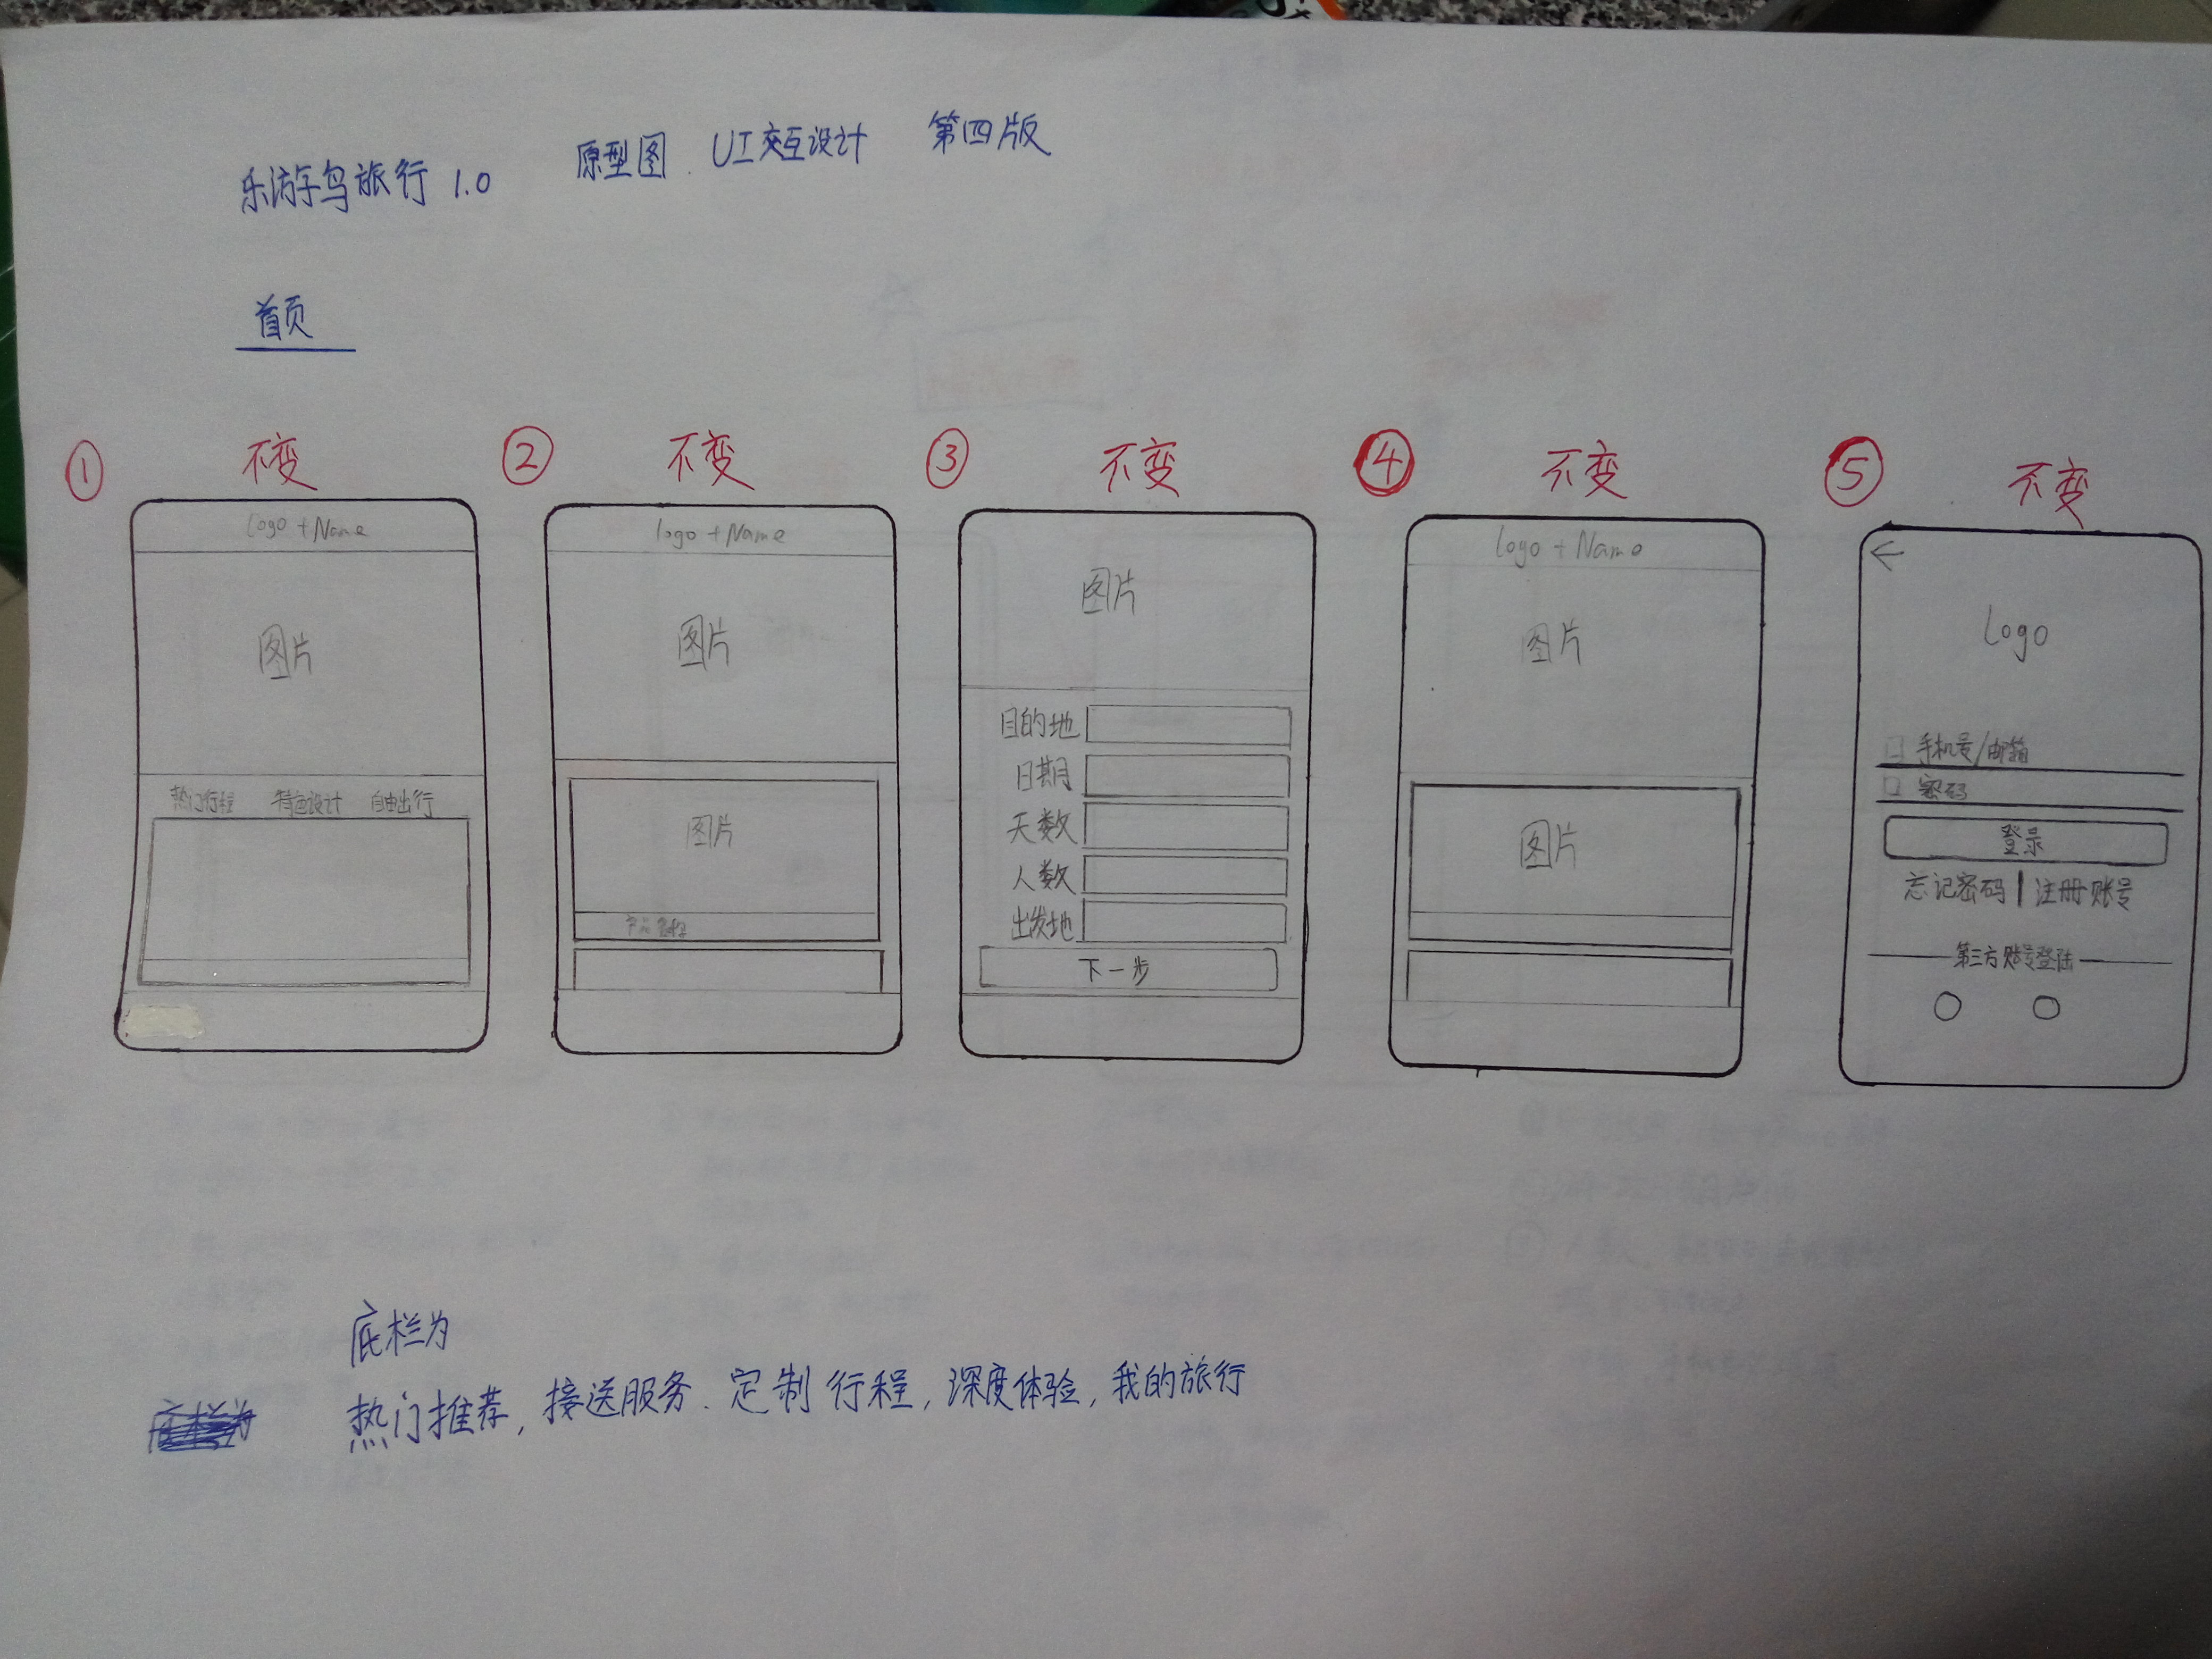 乐游鸟旅行 1.0 原型图. UI交互设计 第四版
首页
① 不变
Logo + Name
图片
热门行程 特色设计 自由出行
② 不变
logo + Name
图片
图片
产品名称
③ 不变
图片
目的地
日期
天数
人数
出发地
下一步
④ 不变
Logo + Name
图片
图片
⑤ 不变
←
Logo
手机号/邮箱
密码
登录
忘记密码 | 注册账号
第三方账号登陆
底栏为
热门推荐, 接送服务. 定制行程, 深度体验, 我的旅行